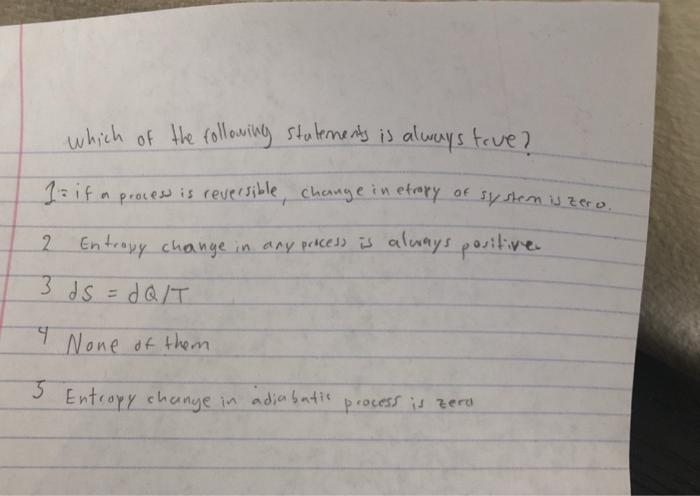 which of the following statements is always true?
1= if a process is reversible, change in etropy of system is zero.
2 Entropy change in any process is always positive
3 ds = dQ/T
4 None of them
5 Entropy change in adiabatic process is zero